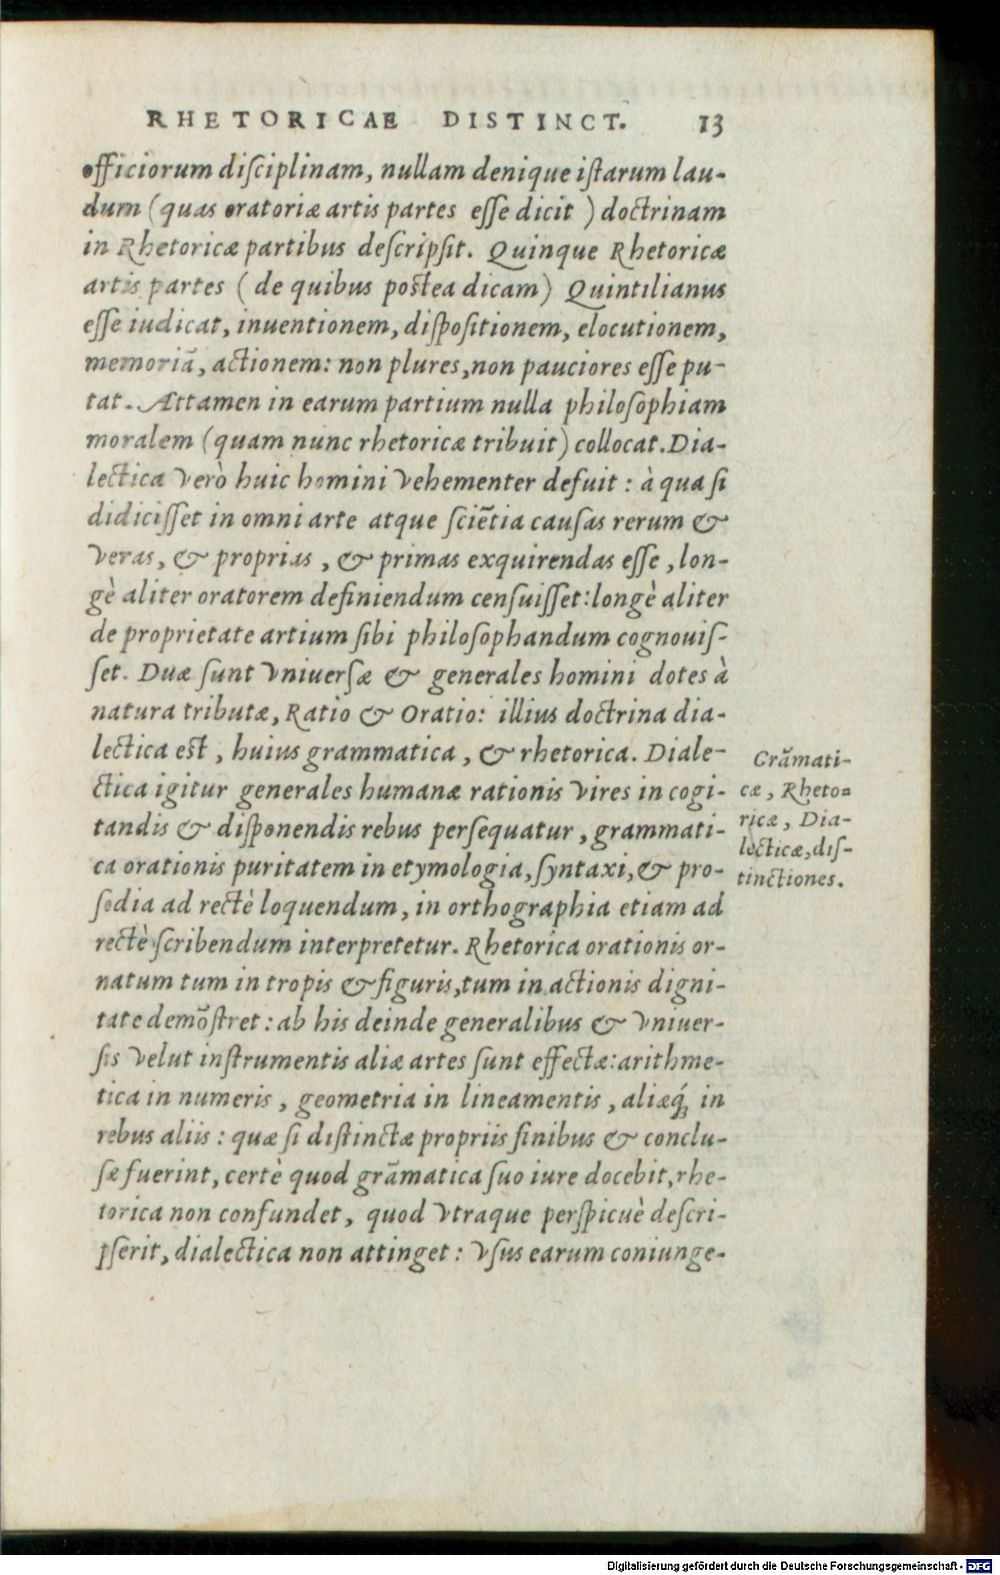 RHETORICAE DISTINCT. 13
officiorum diſciplinam, nullam denique iſtarum lau-
dum (quas oratoriæ artis partes eſſe dicit) doctrinam
in Rhetoricæ partibus deſcripſit. Quinque Rhetoricæ
artis partes (de quibus poſtea dicam) Quintilianus
eſſe iudicat, inuentionem, diſpoſitionem, elocutionem,
memoriã, actionem: non plures, non pauciores eſſe pu-
tat. Attamen in earum partium nulla philoſophiam
moralem (quam nunc rhetoricæ tribuit) collocat. Dia-
lectica verò huic homini vehementer defuit: à qua ſi
didiciſſet in omni arte atque ſciẽtia cauſas rerum &
veras, & proprias, & primas exquirendas eſſe, lon-
gè aliter oratorem definiendum cenſuiſſet: longè aliter
de proprietate artium ſibi philoſophandum cognouiſ-
ſet. Duæ ſunt vniuerſæ & generales homini dotes à
natura tributæ, Ratio & Oratio: illius doctrina dia-
lectica eſt, huius grammatica, & rhetorica. Diale-
ctica igitur generales humanæ rationis vires in cogi-
tandis & diſponendis rebus perſequatur, grammati-
ca orationis puritatem in etymologia, ſyntaxi, & pro-
ſodia ad rectè loquendum, in orthographia etiam ad
rectè ſcribendum interpretetur. Rhetorica orationis or-
natum tum in tropis & figuris, tum in actionis digni-
tate demõſtret: ab his deinde generalibus & vniuer-
ſis velut inſtrumentis aliæ artes ſunt effectæ: arithme-
tica in numeris, geometria in lineamentis, aliæq́; in
rebus aliis: quæ ſi diſtinctæ propriis finibus & conclu-
ſæ fuerint, certè quod grãmatica ſuo iure docebit, rhe-
torica non confundet, quod vtraque perſpicuè deſcri-
pſerit, dialectica non attinget: vſus earum coniunge-
Grãmati-
cæ, Rheto-
ricæ, Dia-
lecticæ, diſ-
tinctiones.
Digitalisierung gefördert durch die Deutsche Forschungsgemeinschaft - DFG